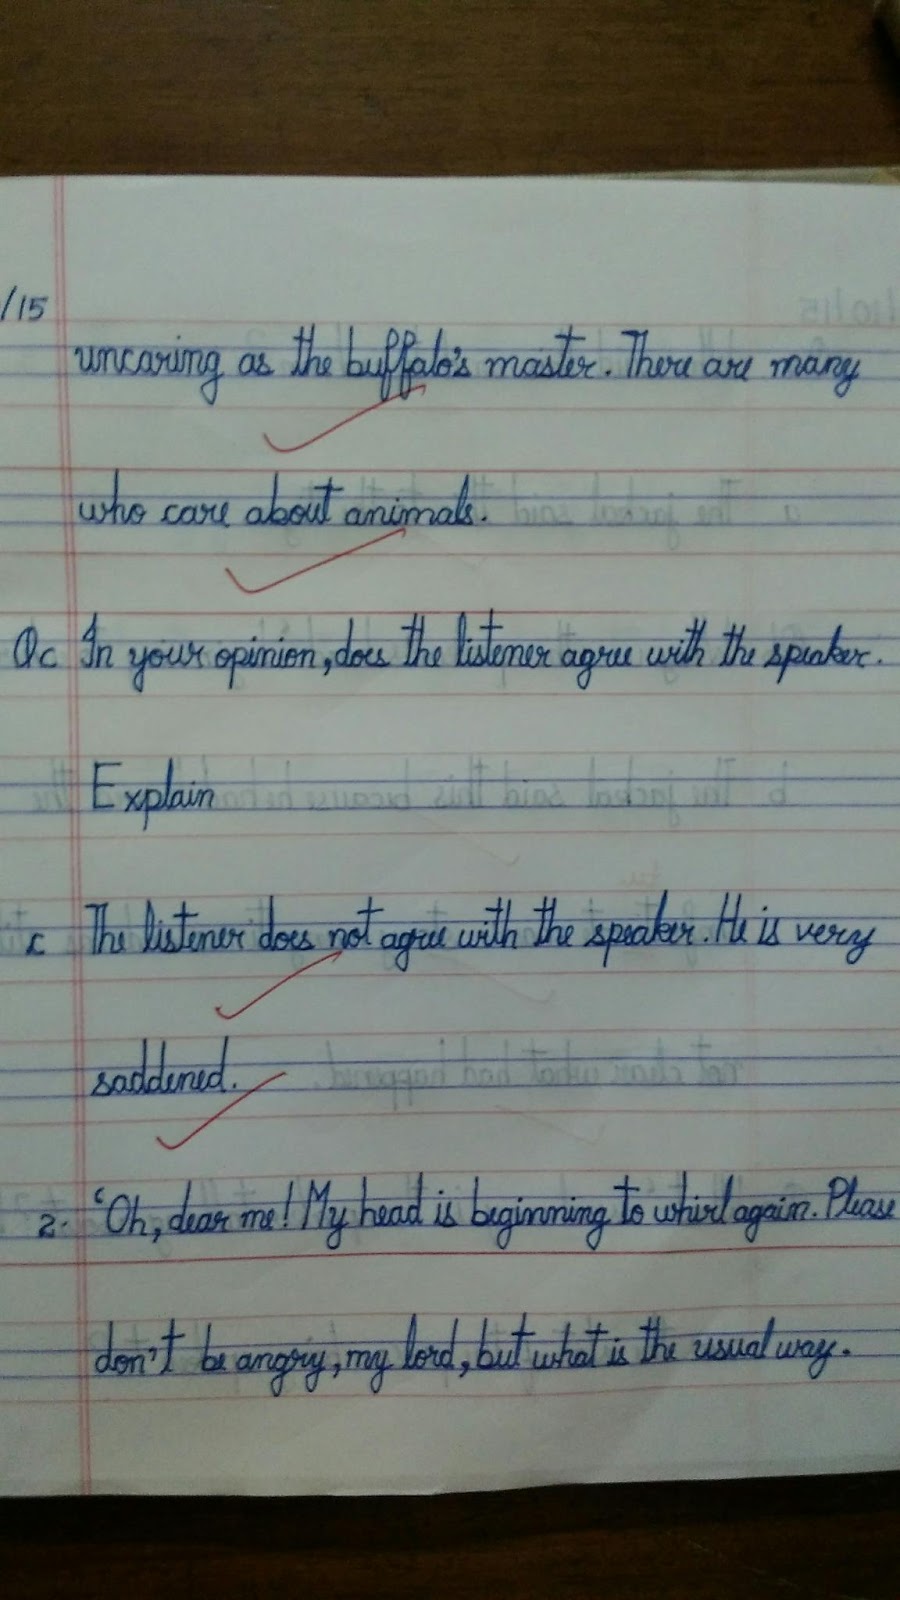 /15
uncaring as the buffalo's master. There are many
who care about animals.
Qc In your opinion, does the listener agree with the speaker.
Explain
c The listener does not agree with the speaker. He is very
saddened.
2. 'Oh, dear me! My head is beginning to whirl again. Please
don't be angry, my lord, but what is the usual way.